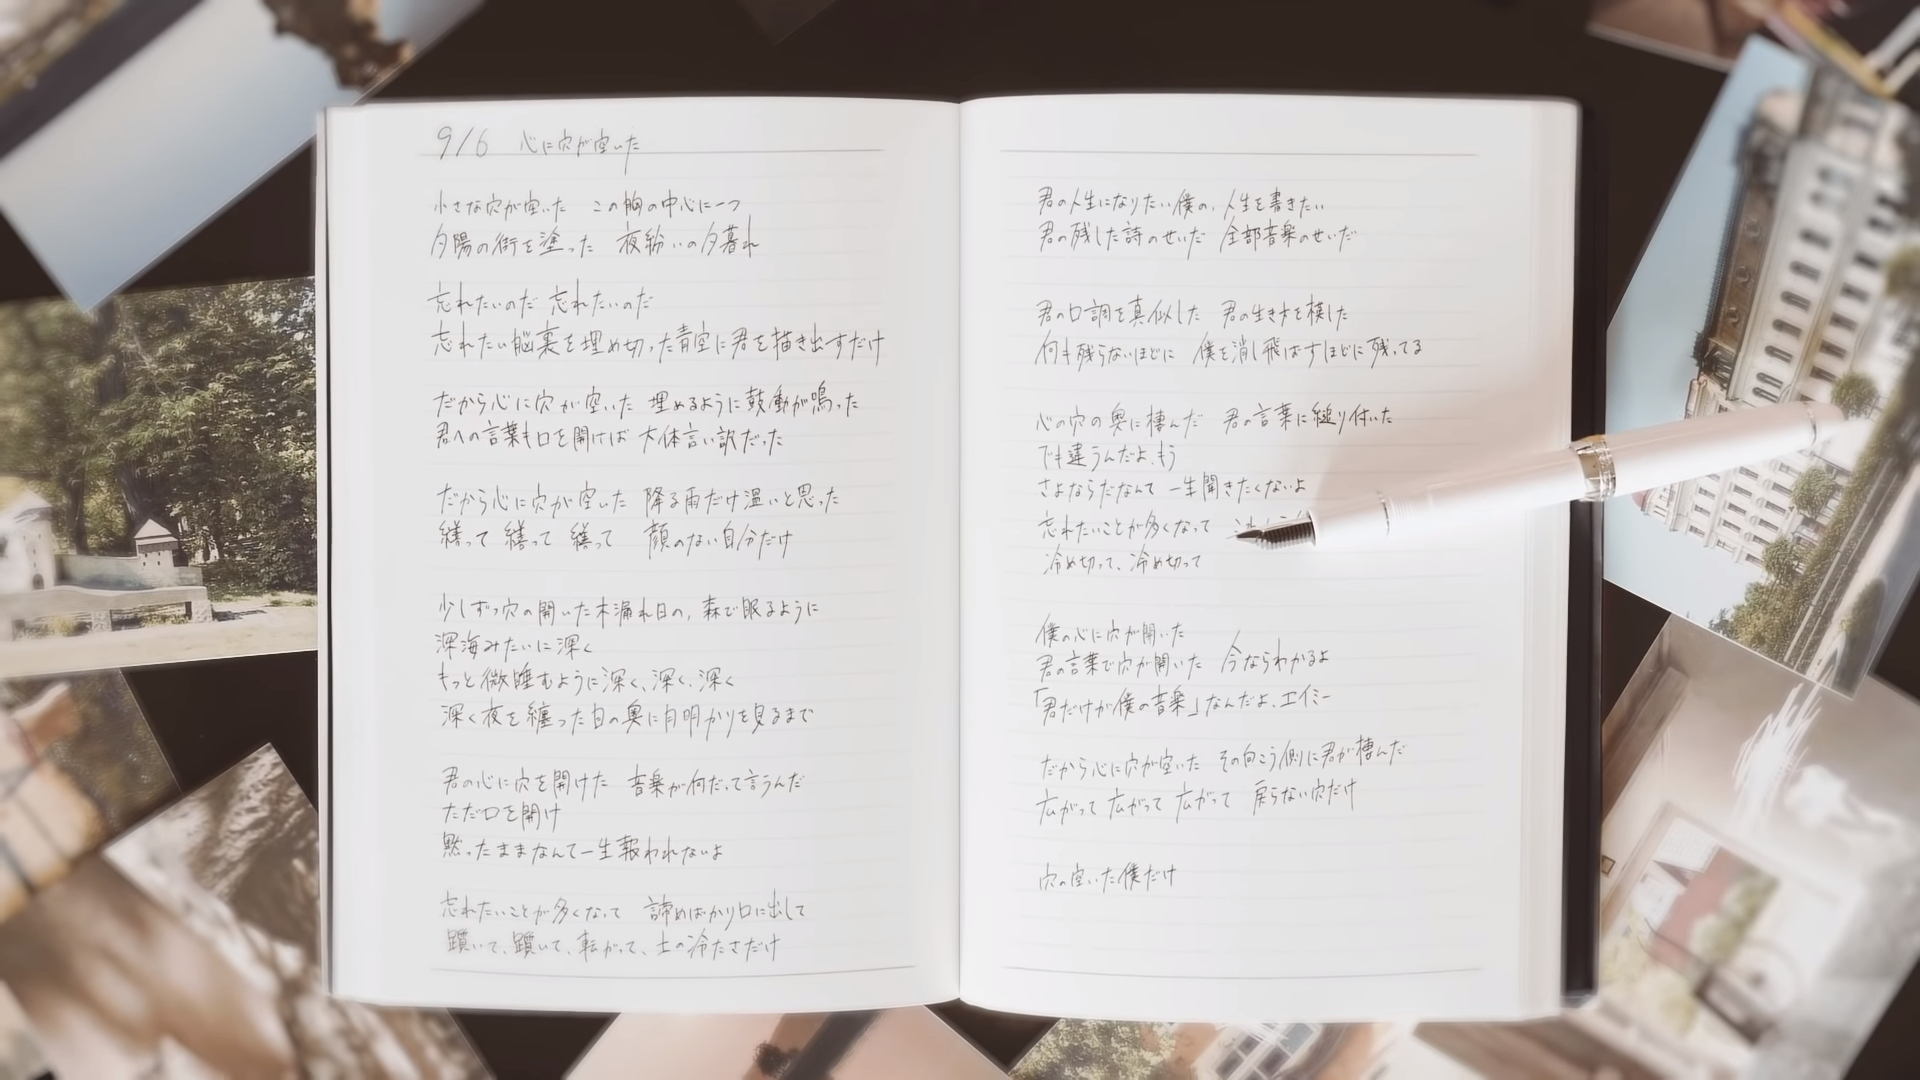 9/6 心に穴が空いた
小さな穴が空いた この胸の中心に一つ
夕陽の街を塗った 夜紛いの夕暮れ
忘れたいのだ 忘れたいのだ
忘れたい脳裏を埋め切った青空に君を描き出すだけ
だから心に穴が空いた 埋めるように鼓動が鳴った
君への言葉も口を開けば 大体言い訳だった
だから心に穴が空いた 降る雨だけ温いと思った
繕って 繕って 繕って 顔のない自分だけ
少しずつ穴の開いた木漏れ日の、森で眠るように
深海みたいに深く
もっと微睡むように深く、深く、深く
深く夜を纏った目の奥に月明かりを見るまで
君の心に穴を開けた 音楽が何だって言うんだ
ただ口を開け
黙ったままなんて一生報われないよ
忘れたいことが多くなって 諦めばかり口に出して
躓いて、躓いて、転がって、土の冷たさだけ
君の人生になりたい僕の、人生を書きたい
君の残した詩のせいだ 全部音楽のせいだ
君の口調を真似した 君の生き方を模した
何も残らないほどに 僕を消し飛ばすほどに残ってる
心の穴の奥に棲んだ 君の言葉に縋り付いた
でも違うんだよ、もう
さよならだなんて 一生聞きたくないよ
忘れたいことが多くなって
冷め切って、冷め切って
僕の心に穴が開いた
君の言葉で穴が開いた 今ならわかるよ
「君だけが僕の音楽」なんだよ、エイミー
だから心に穴が空いた その向こう側に君が棲んだ
広がって 広がって 広がって 戻らない穴だけ
穴の空いた僕だけ